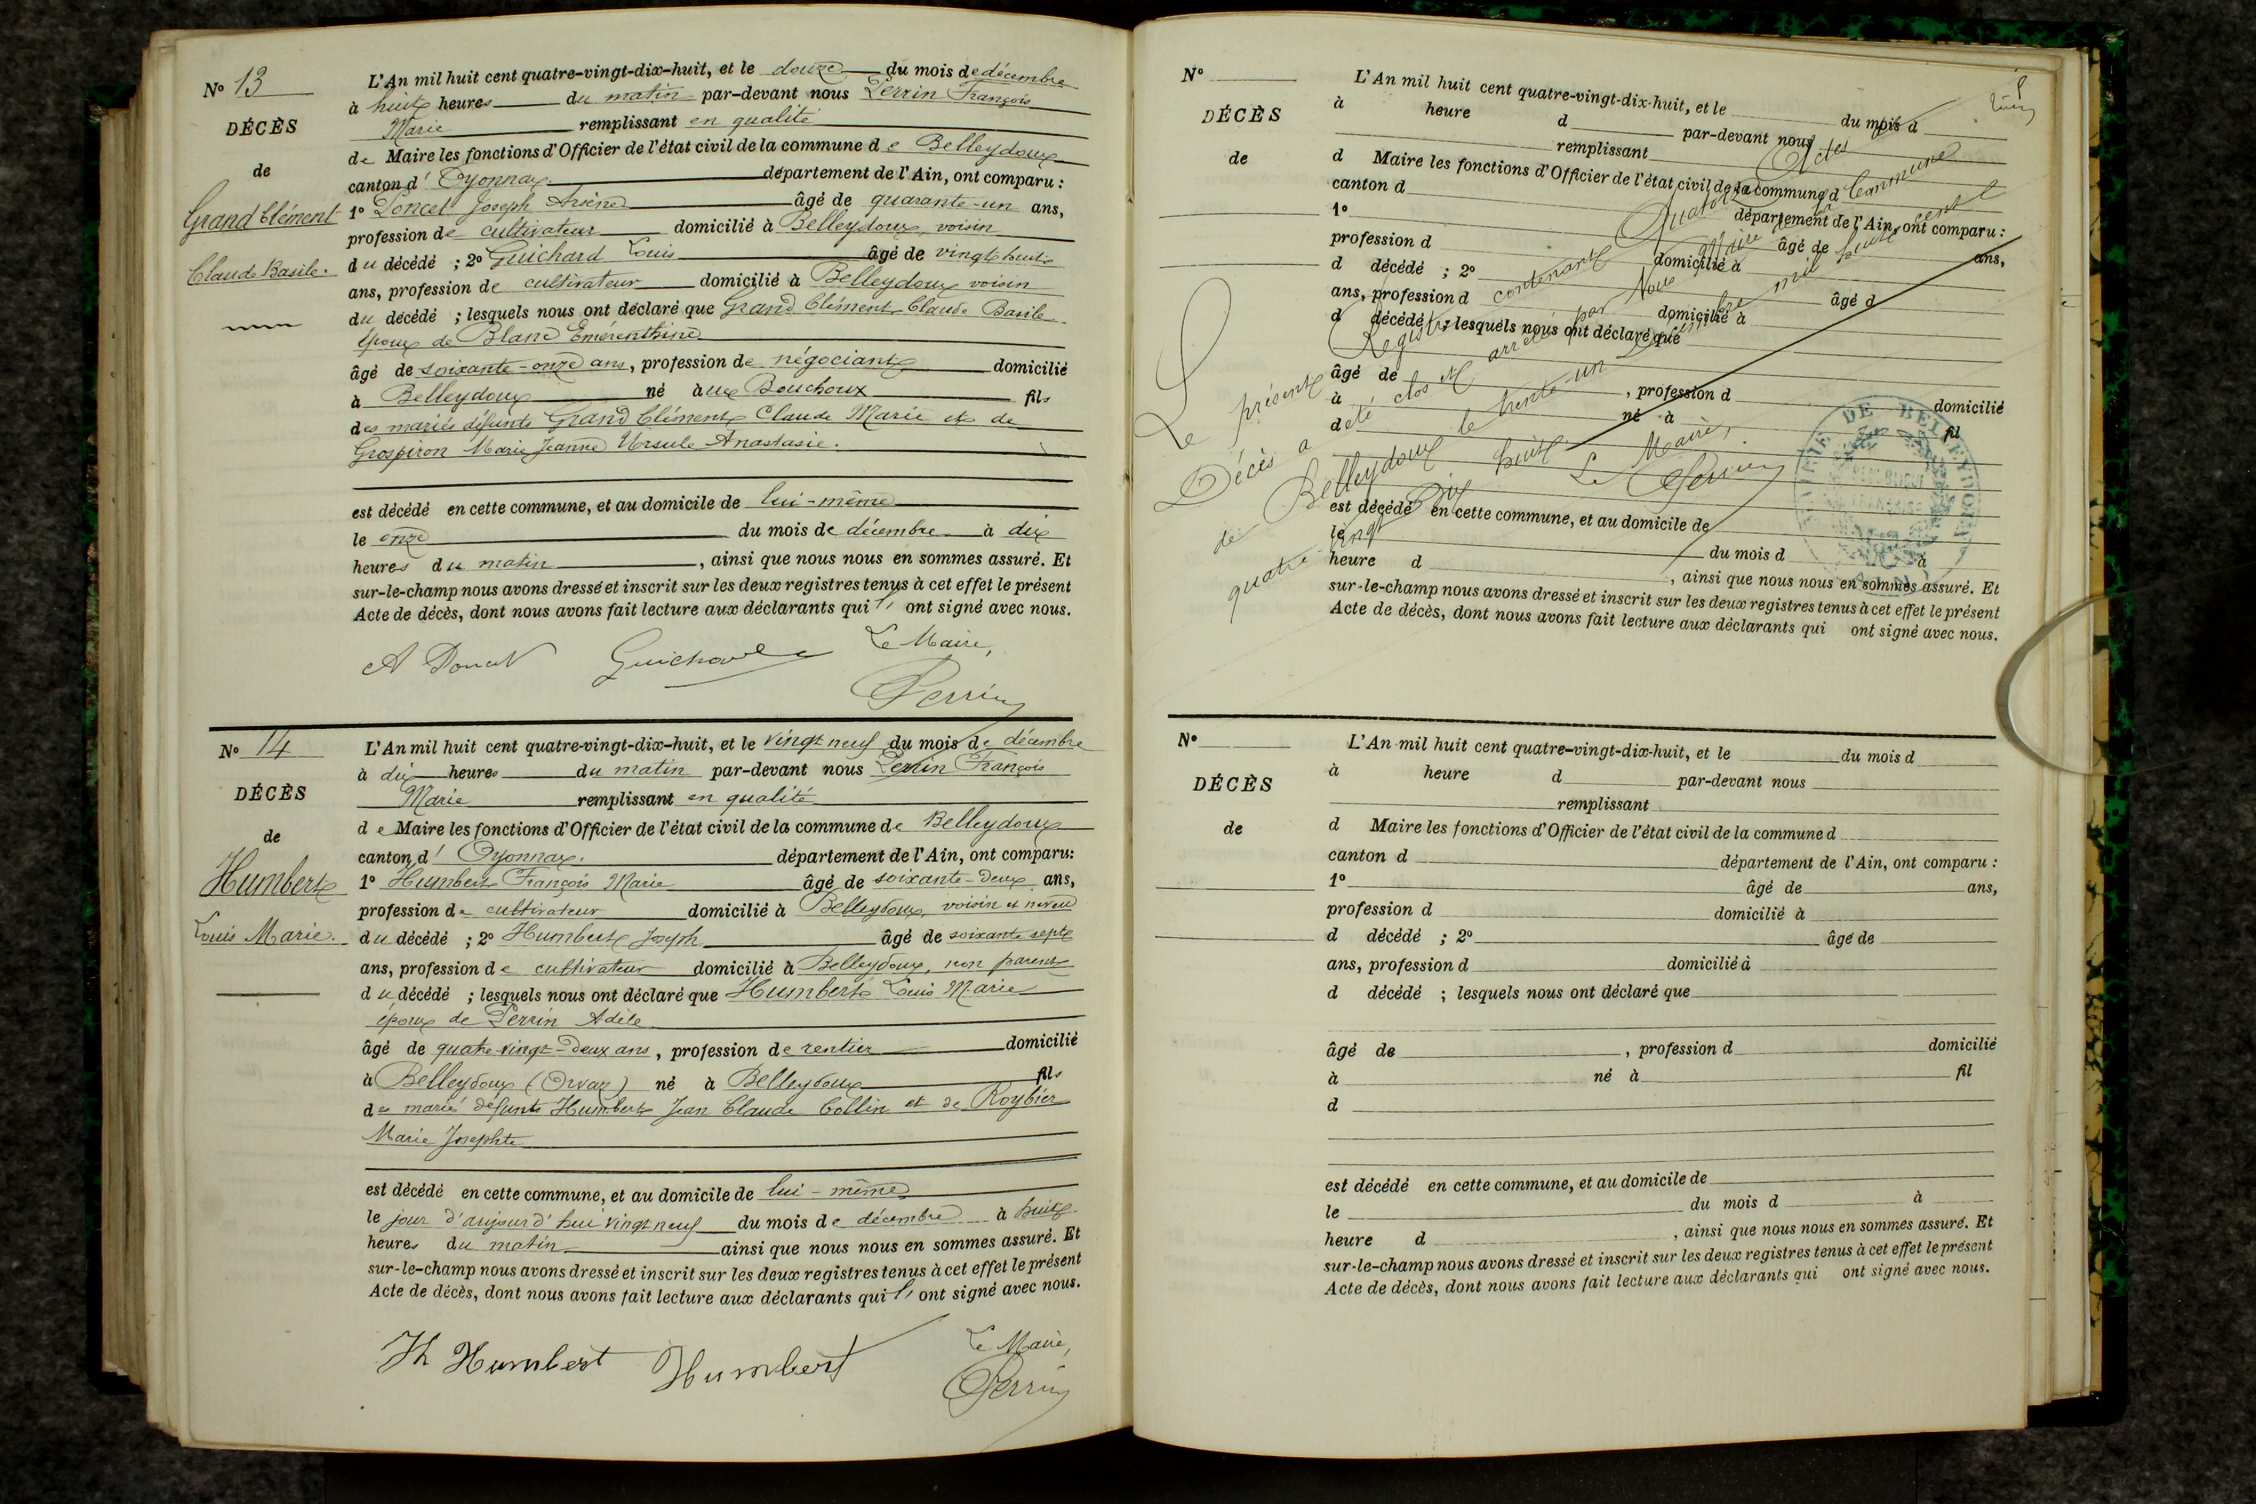 N° 13
DÉCÈS
de
Grand Clément
Claude Basile.
L'An mil huit cent quatre-vingt-dix-huit, et le douze du mois de décembre
à huit heures du matin par-devant nous Perrin François
Marie remplissant en qualité
de Maire les fonctions d'Officier de l'état civil de la commune de Belleydoux
canton d' Oyonnax département de l'Ain, ont comparu :
1° Poncet Joseph Arsène âgé de quarante-un ans,
profession de cultivateur domicilié à Belleydoux, voisin
du décédé ; 2° Guichard Louis âgé de vingt huit
ans, profession de cultivateur domicilié à Belleydoux voisin
du décédé ; lesquels nous ont déclaré que Grand Clément Claude Basile
époux de Blanc Emérenthine
âgé de soixante-onze ans, profession de négociant domicilié
à Belleydoux né aux Bouchoux fils
des mariés défunts Grand Clément Claude Marie et de
Grospiron Marie Jeanne Ursule Anastasie.
est décédé en cette commune, et au domicile de lui-même
le onze du mois de décembre à dix
heures du matin, ainsi que nous nous en sommes assuré. Et
sur-le-champ nous avons dressé et inscrit sur les deux registres tenus à cet effet le présent
Acte de décès, dont nous avons fait lecture aux déclarants qui l' ont signé avec nous.
Guichard Le Maire,
Perrin
N° 14
DÉCÈS
de
Humbert
Louis Marie.
L'An mil huit cent quatre-vingt-dix-huit, et le vingt neuf du mois de décembre
à dix heures du matin par-devant nous Perrin François
Marie remplissant en qualité
de Maire les fonctions d'Officier de l'état civil de la commune de Belleydoux
canton d' Oyonnax. département de l'Ain, ont comparu:
1° Humbert François Marie âgé de soixante-deux ans,
profession de cultivateur domicilié à Belleydoux, voisin et neveu
du décédé ; 2° Humbert Joseph âgé de soixante sept
ans, profession de cultivateur domicilié à Belleydoux, non parent
du décédé ; lesquels nous ont déclaré que Humbert Louis Marie
époux de Perrin Adèle
âgé de quatre-vingt-deux ans, profession de rentier domicilié
à Belleydoux (Orvaz) né à Belleydoux fils
des mariés défunts Humbert Jean Claude Collin et de Roybier
Marie Josephte
est décédé en cette commune, et au domicile de lui-même
le jour d'aujourd'hui vingt neuf du mois de décembre à huit
heures du matin ainsi que nous nous en sommes assuré. Et
sur-le-champ nous avons dressé et inscrit sur les deux registres tenus à cet effet le présent
Acte de décès, dont nous avons fait lecture aux déclarants qui l' ont signé avec nous.
Humbert Humbert Le Maire,
Perrin
N°
DÉCÈS
de
L'An mil huit cent quatre-vingt-dix-huit, et le du mois d
à heure d par-devant nous
remplissant
d Maire les fonctions d'Officier de l'état civil de la commune d
canton d département de l'Ain, ont comparu :
1° âgé de ans,
profession d domicilié à
d décédé ; 2° âgé d
ans, profession d domicilié à
d décédé ; lesquels nous ont déclaré que
âgé de , profession d domicilié
à né à fil
d
est décédé en cette commune, et au domicile de
le du mois d à
heure d , ainsi que nous nous en sommes assuré. Et
sur-le-champ nous avons dressé et inscrit sur les deux registres tenus à cet effet le présent
Acte de décès, dont nous avons fait lecture aux déclarants qui ont signé avec nous.
Le présent Registre contenant Quatorze Actes
Décès a été clos et arrêté par Nous Maire de la Commune
de Belleydoux le trente-un Décembre mil huit cent
quatre vingt Dix huit Le Maire,
Perrin
MAIRIE DE BELLEYDOUX
AIN
N°
DÉCÈS
de
L'An mil huit cent quatre-vingt-dix-huit, et le du mois d
à heure d par-devant nous
remplissant
d Maire les fonctions d'Officier de l'état civil de la commune d
canton d département de l'Ain, ont comparu :
1° âgé de ans,
profession d domicilié à
d décédé ; 2° âgé de
ans, profession d domicilié à
d décédé ; lesquels nous ont déclaré que
âgé de , profession d domicilié
à né à fil
d
est décédé en cette commune, et au domicile de
le du mois d à
heure d , ainsi que nous nous en sommes assuré. Et
sur-le-champ nous avons dressé et inscrit sur les deux registres tenus à cet effet le présent
Acte de décès, dont nous avons fait lecture aux déclarants qui ont signé avec nous.